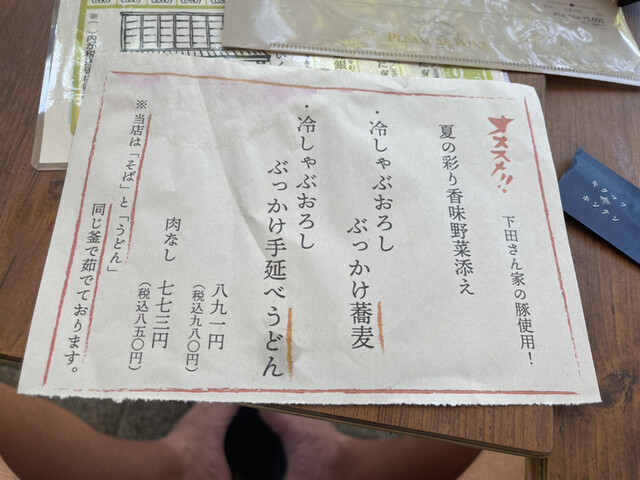 オススメ!!
下田さん家の豚使用！
夏の彩り香味野菜添え
・冷しゃぶおろし
ぶっかけ蕎麦
・冷しゃぶおろし
ぶっかけ手延べうどん
八九一円
（税込九八〇円）
肉なし
七七三円
（税込八五〇円）
※当店は「そば」と「うどん」
同じ釜で茹でております。